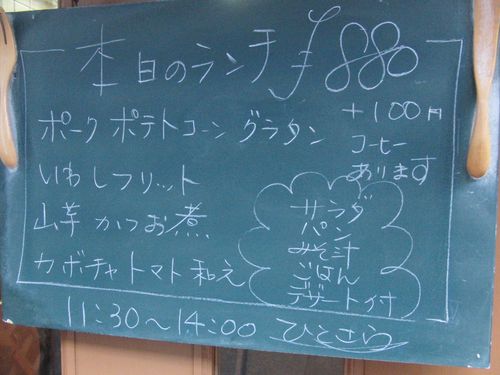 本日のランチ ¥880
ポークポテトコーングラタン
+100円
コーヒー
あります
いわしフリット
山芋かつお煮
カボチャトマト和え
サラダ
パン
みそ汁
ごはん
デザート付
11:30〜14:00 ひとさら